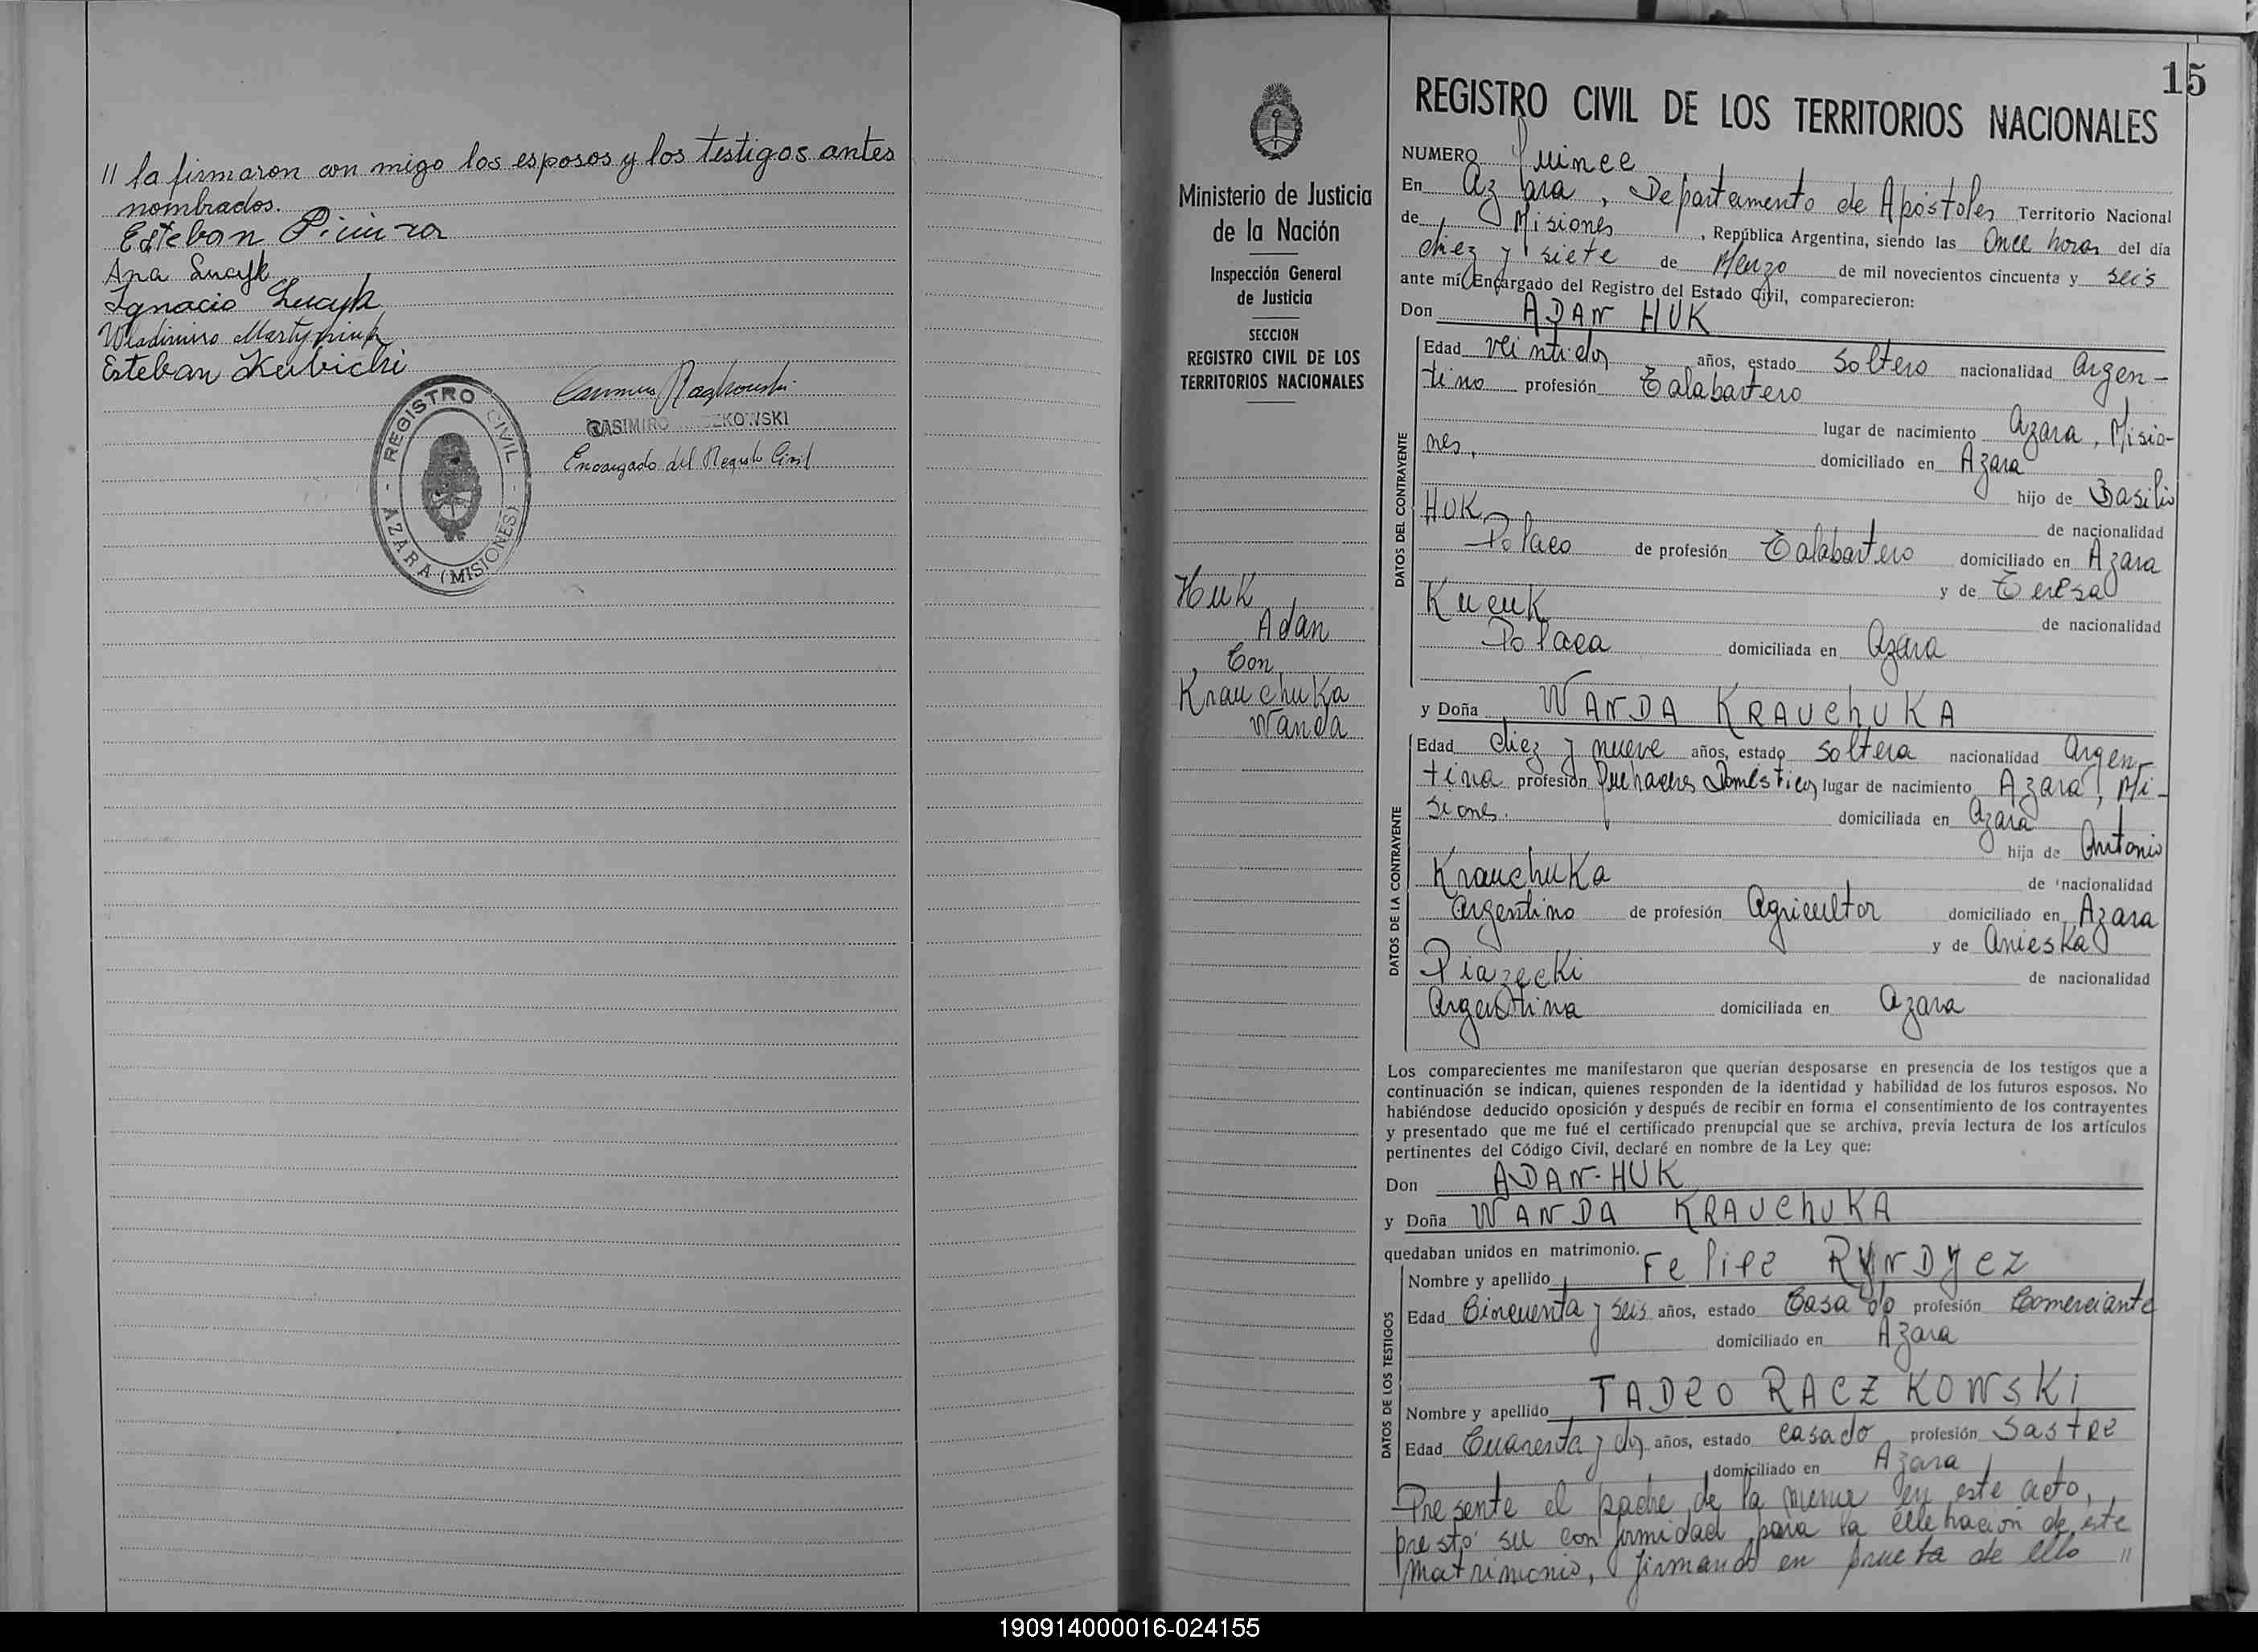 // la firmaron con migo los esposos y los testigos antes
nombrados.
Esteban
Ana Lucyk
Ignacio Lucyk
Wladimiro Martyniuk
Esteban Kubichi
REGISTRO CIVIL
AZARA (MISIONES)
CASIMIRO ZKOWSKI
Encargado del Registro Civil
Ministerio de Justicia
de la Nación
Inspección General
de Justicia
SECCION
REGISTRO CIVIL DE LOS
TERRITORIOS NACIONALES
Huk
Adan
Con
Krauchuka
Wanda
15
REGISTRO CIVIL DE LOS TERRITORIOS NACIONALES
NUMERO Quince
En Azara, Departamento de Apóstoles Territorio Nacional
de Misiones, República Argentina, siendo las Once horas del día
diez y siete de Marzo de mil novecientos cincuenta y seis
ante mí Encargado del Registro del Estado Civil, comparecieron:
Don ADAN HUK
DATOS DEL CONTRAYENTE
Edad veintidos años, estado soltero nacionalidad Argen-
tino profesión Talabartero
lugar de nacimiento Azara, Misio-
nes, domiciliado en Azara
hijo de Basilio
HUK de nacionalidad
Polaco de profesión Talabartero domiciliado en Azara
y de Teresa
Kucuk de nacionalidad
Polaca domiciliada en Azara
y Doña WANDA KRAUchUKA
DATOS DE LA CONTRAYENTE
Edad diez y nueve años, estado soltera nacionalidad Argen-
tina profesión Quehaceres Domésticos lugar de nacimiento Azara, Mi-
siones. domiciliada en Azara
hija de Antonio
Krauchuka de nacionalidad
Argentino de profesión Agricultor domiciliado en Azara
y de Anieska
Piazecki de nacionalidad
Argentina domiciliada en Azara
Los comparecientes me manifestaron que querían desposarse en presencia de los testigos que a
continuación se indican, quienes responden de la identidad y habilidad de los futuros esposos. No
habiéndose deducido oposición y después de recibir en forma el consentimiento de los contrayentes
y presentado que me fué el certificado prenupcial que se archiva, previa lectura de los artículos
pertinentes del Código Civil, declaré en nombre de la Ley que:
Don ADAN-HUK
y Doña WANDA KRAUchUKA
quedaban unidos en matrimonio.
DATOS DE LOS TESTIGOS
Nombre y apellido Felipe RYNDYcz
Edad Cincuenta y seis años, estado Casado profesión Comerciante
domiciliado en Azara
Nombre y apellido TADeO RACZKOWSKI
Edad Cuarenta y dos años, estado casado profesión Sastre
domiciliado en Azara
Presente el padre de la menor en este acto,
prestó su conformidad para la celebración de este
matrimonio, firmando en prueba de ello //
190914000016-024155